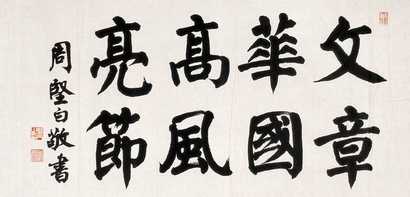 文章
華國
高風
亮節
周堅白敬書